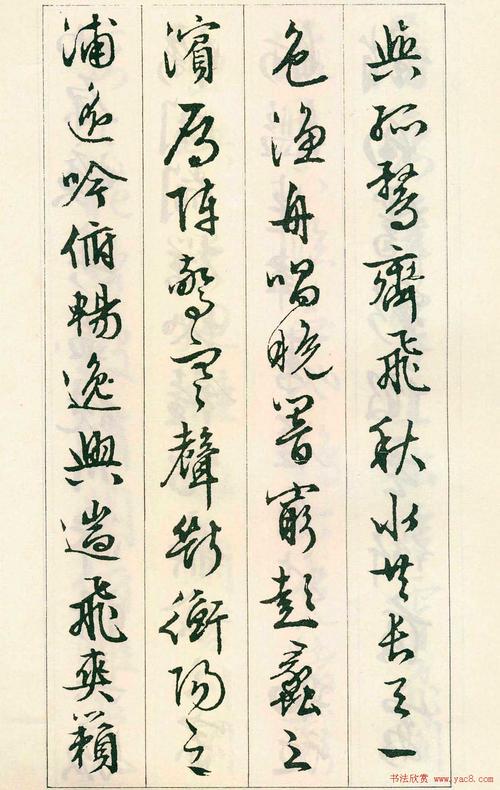 與孤鶩齊飛秋水共長天一
色漁舟唱晚響窮彭蠡之
濱雁陣驚寒聲斷衡陽之
浦遙吟俯暢逸興遄飛爽籟
书法欣赏
www.yac8.com